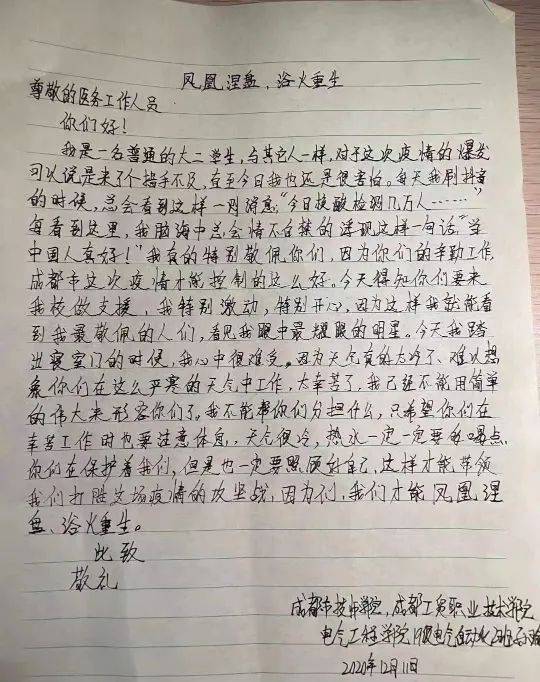 凤凰涅盘，浴火重生
尊敬的医务工作人员
你们好！
我是一名普通的大二学生，与其它人一样，对于这次疫情的爆发
可以说是来了个措手不及，直至今日我也还是很害怕。每天我刷抖音
的时候，总会看到这样一则消息，"今日核酸检测几万人……"
每看到这里，我脑海中总会情不自禁的浮现这样一句话，"当
中国人真好！"我真的特别敬佩你们，因为你们的辛勤工作，
成都市这次疫情才能控制的这么好。今天得知你们要来
我校做支援，我特别激动，特别开心，因为这样我就能看
到我最敬佩的人们，看见我眼中最耀眼的明星。今天我踏
出寝室门的时候，我心中很难受。因为天气真的太冷了、难以想
象你们在这么严寒的天气中工作，太辛苦了，我已经不能用简单
的伟大来形容你们了。我不能帮你们分担什么，只希望你们在
辛苦工作时也要注意休息，天气很冷，热水一定一定要多喝点，
你们在保护着我们，但是也一定要照顾好自己，这样才能带领
我们打胜这场疫情的攻坚战，因为们，我们才能凤凰涅
盘、浴火重生。
此致
敬礼
成都市技师学院，成都工贸职业技术学院
电气工程学院 电气自动化
2020年12月11日